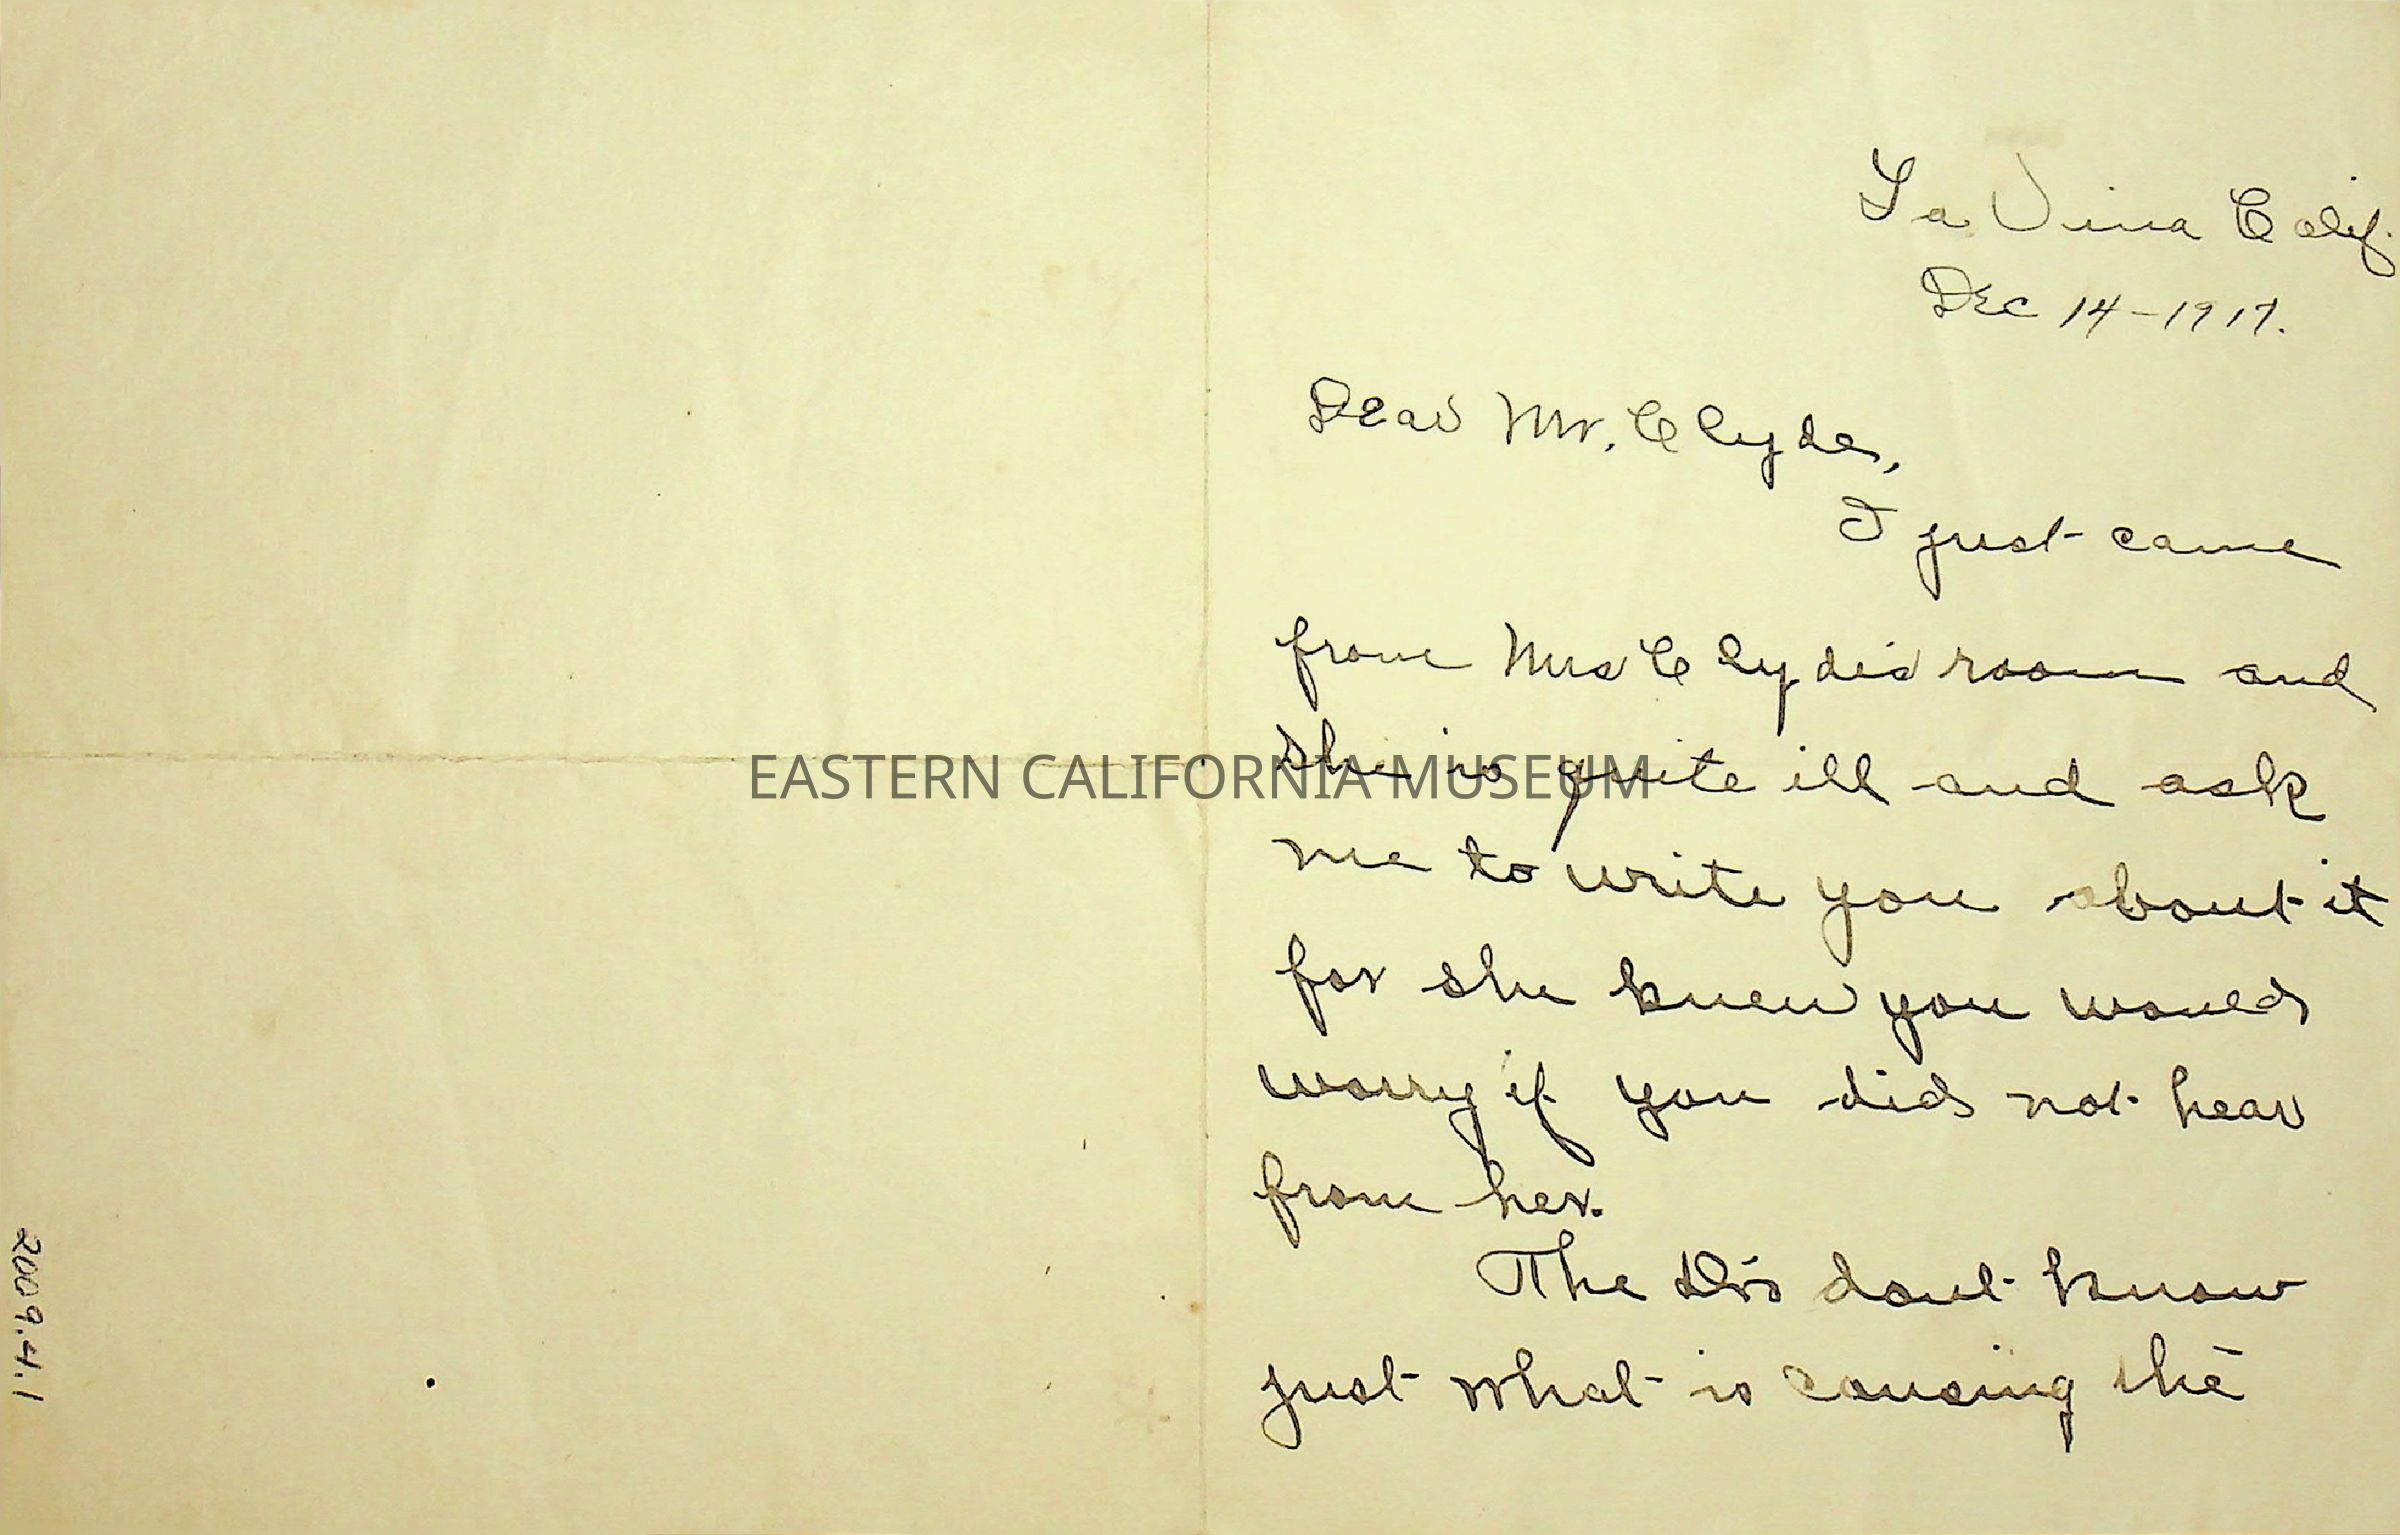 La Vina Calif.
Dec 14-1917.
Dear Mr. Clyde,
I just came
from Mrs Clyde's room and
she is quite ill and ask
me to write you about it
for she knew you would
worry if you did not hear
from her.
The Drs dont know
just what is causing the
EASTERN CALIFORNIA MUSEUM
2009.4.1